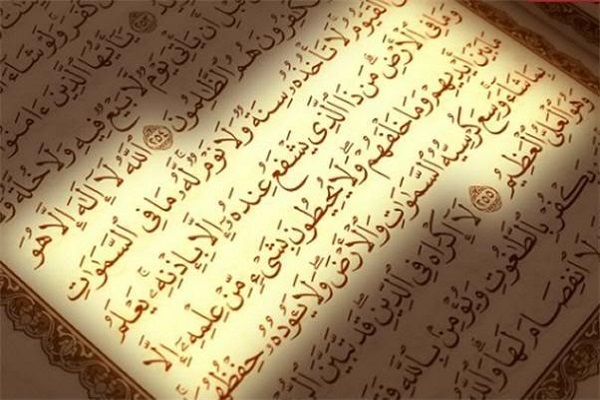 كَفَرَ وَلَوْ شَآءَ
٢٥٣ يَٰٓأَيُّهَا ٱلَّذِينَ ءَامَنُوٓا۟
قَبْلِ أَن يَأْتِىَ يَوْمٌ لَّا بَيْعٌ فِيهِ وَلَا خُلَّةٌ
هُمُ ٱلظَّٰلِمُونَ ٢٥٤ ٱللَّهُ لَآ إِلَٰهَ إِلَّا هُوَ
ٱلْقَيُّومُ لَا تَأْخُذُهُۥ سِنَةٌ وَلَا نَوْمٌ لَّهُۥ مَا فِى ٱلسَّمَٰوَٰتِ
وَمَا فِى ٱلْأَرْضِ مَن ذَا ٱلَّذِى يَشْفَعُ عِندَهُۥٓ إِلَّا بِإِذْنِهِۦ يَعْلَمُ
مَا بَيْنَ أَيْدِيهِمْ وَمَا خَلْفَهُمْ وَلَا يُحِيطُونَ بِشَىْءٍ مِّنْ عِلْمِهِۦٓ إِلَّا
بِمَا شَآءَ وَسِعَ كُرْسِيُّهُ ٱلسَّمَٰوَٰتِ وَٱلْأَرْضَ وَلَا يَـُٔودُهُۥ حِفْظُهُمَا
وَهُوَ ٱلْعَلِىُّ ٱلْعَظِيمُ ٢٥٥ لَآ إِكْرَاهَ فِى ٱلدِّينِ قَد تَّبَيَّنَ
يَكْفُرْ بِٱلطَّٰغُوتِ وَيُؤْمِنۢ بِٱللَّهِ فَقَدِ
لَا ٱنفِصَامَ لَهَا وَٱللَّهُ